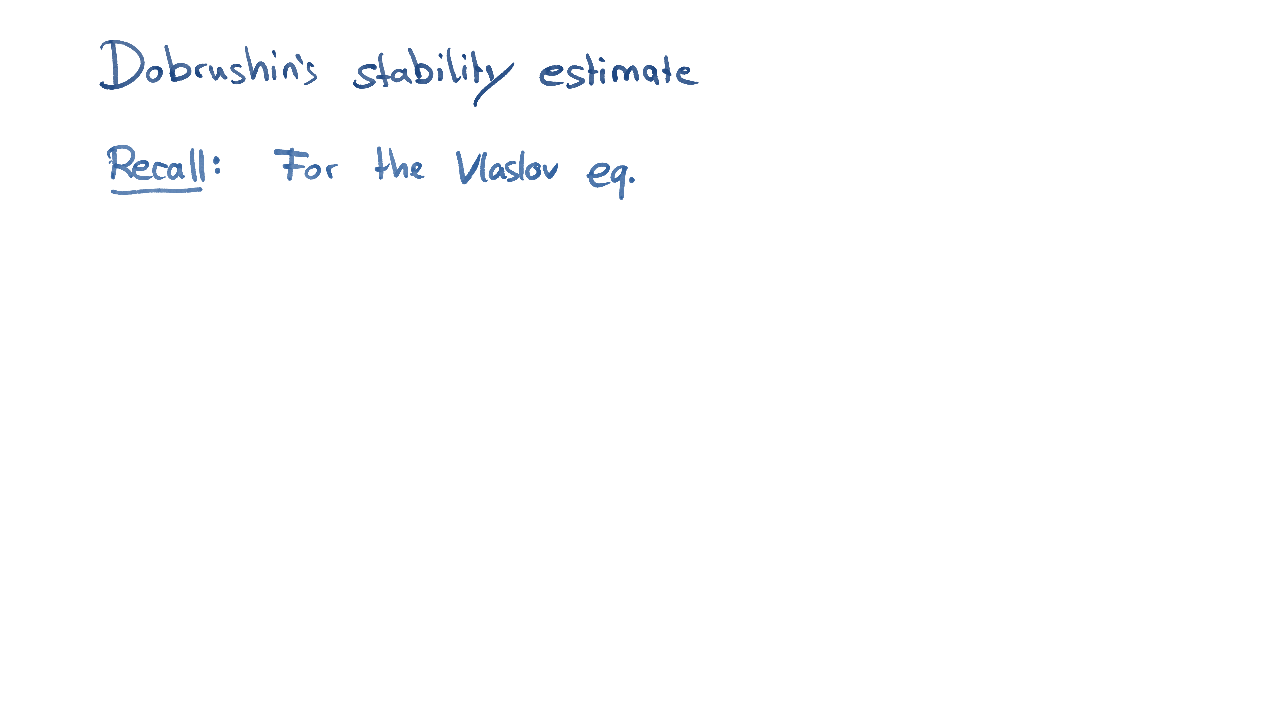 Dobrushin's stability estimate
Recall: For the Vlaslov eq.